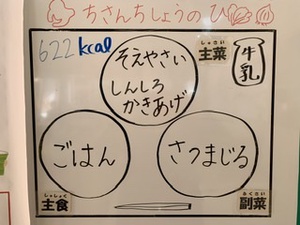 ちさんちしょうのひ
622 kcal
そえやさい
しんしろ
かきあげ
しゅさい
主菜
牛乳
ごはん
さつまじる
しゅしょく
主食
ふくさい
副菜